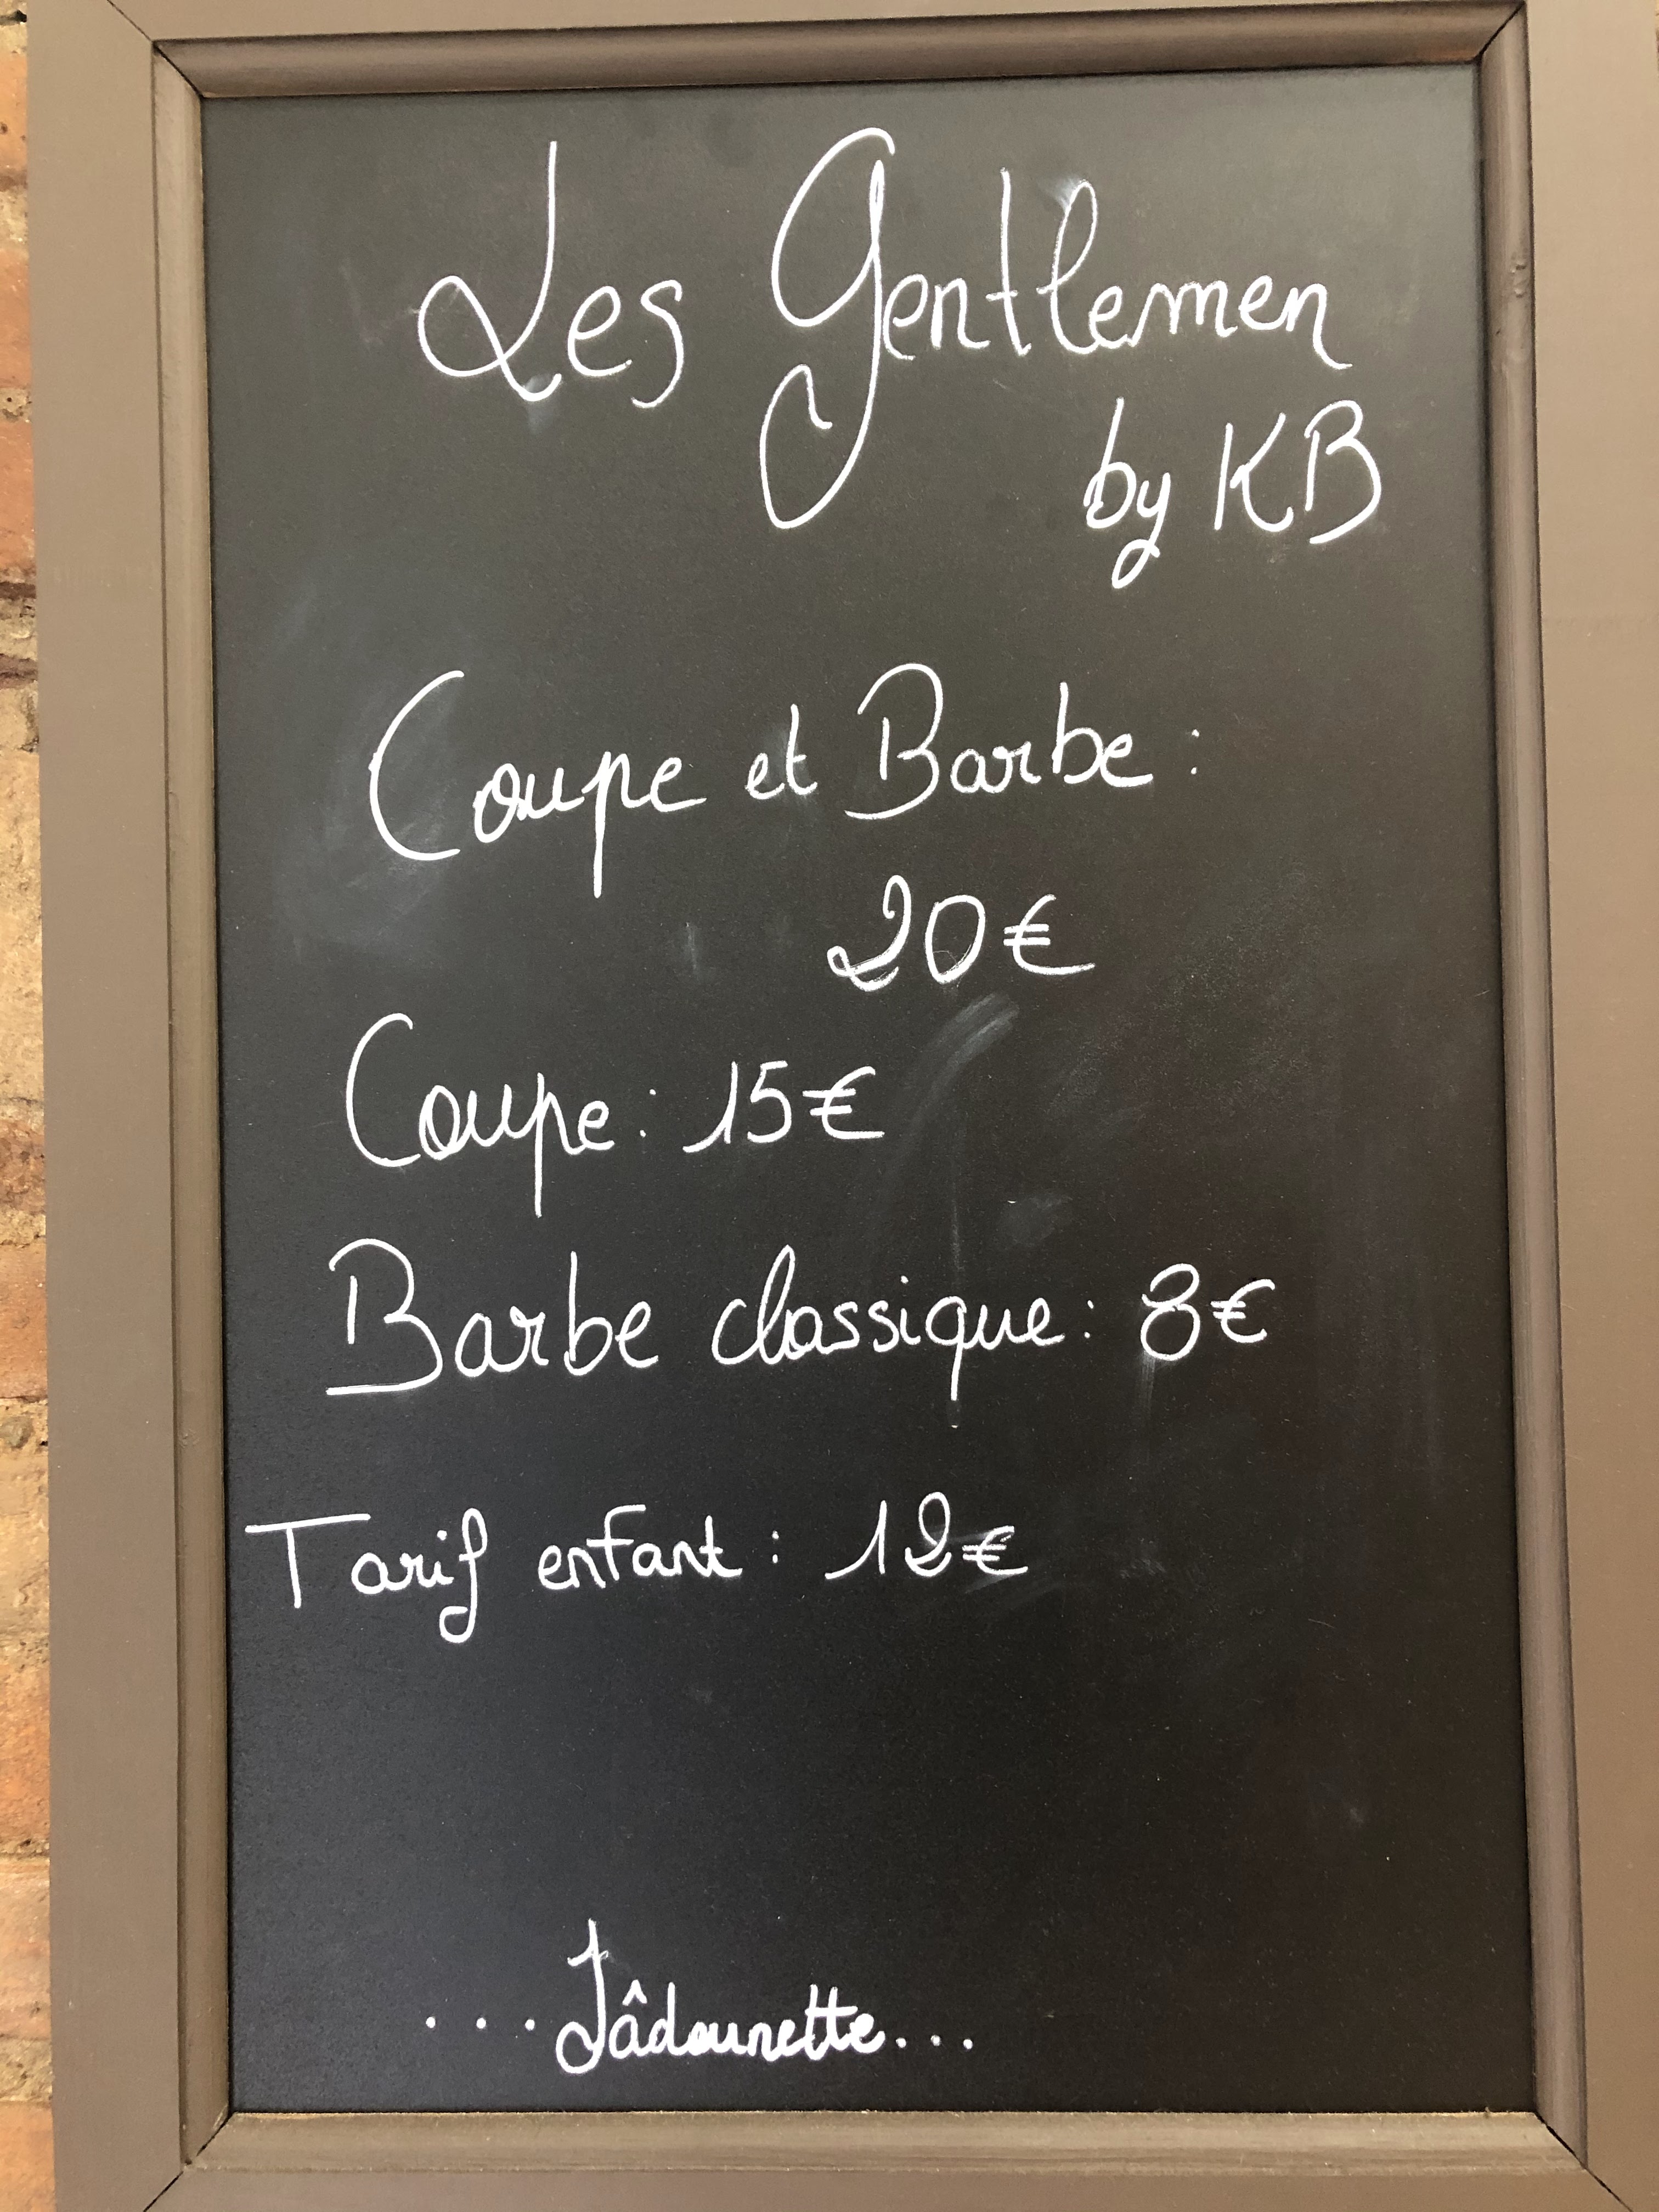 Les Gentlemen
by KB
Coupe et Barbe :
20€
Coupe : 15€
Barbe classique : 8€
Tarif enfant : 12€
...Jâdounette...